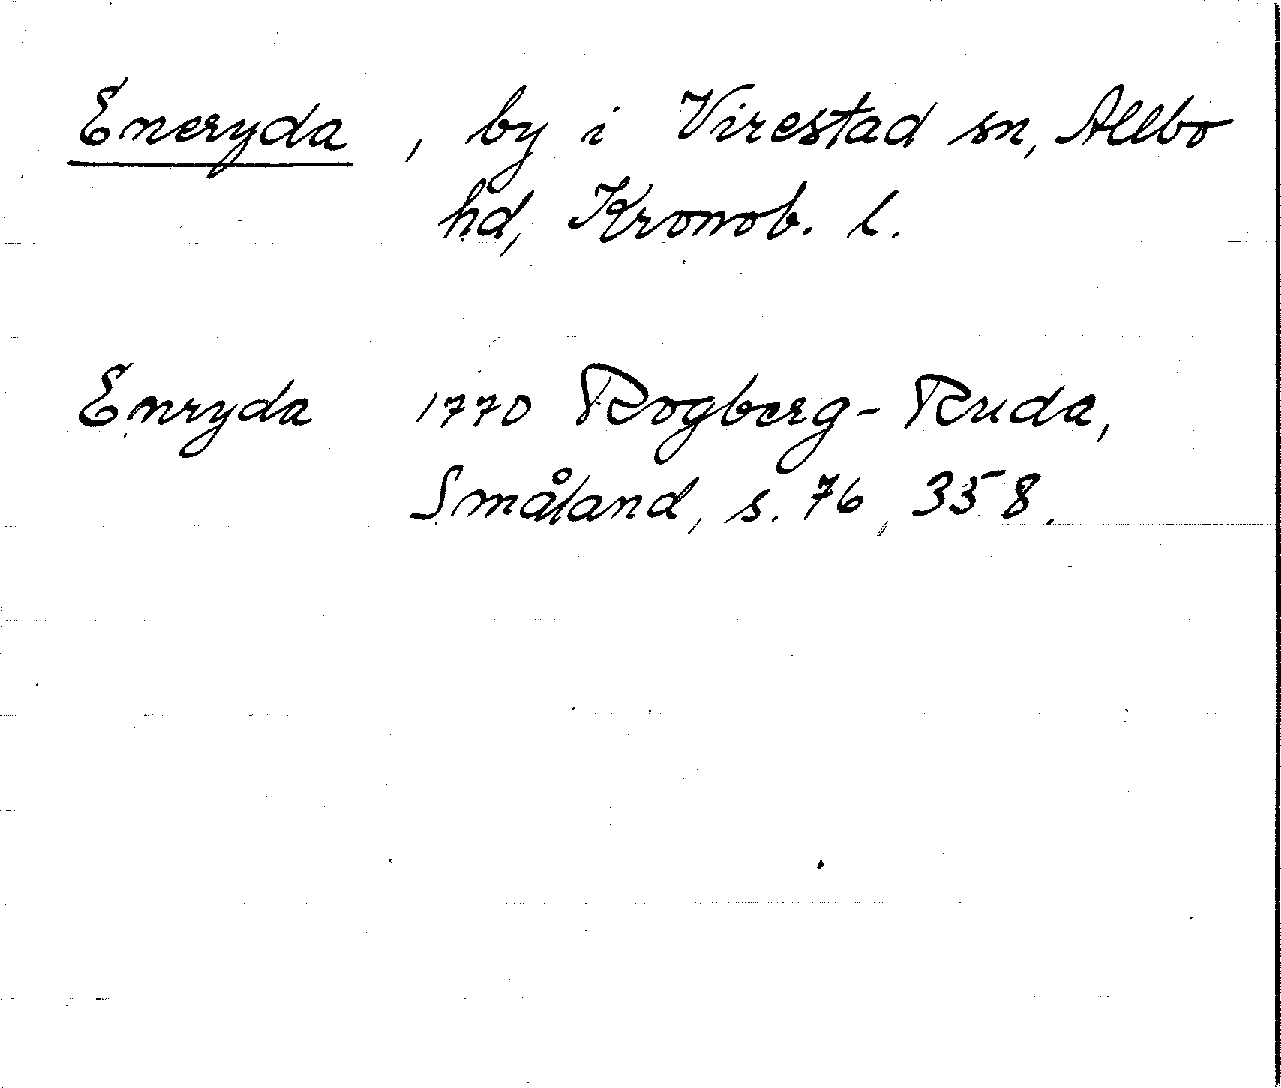 Eneryda, by i Virestad sn, Allbo
hd, Kronob. l.
Enryda 1770 Rogberg-Ruda,
Småland, s. 76, 358.